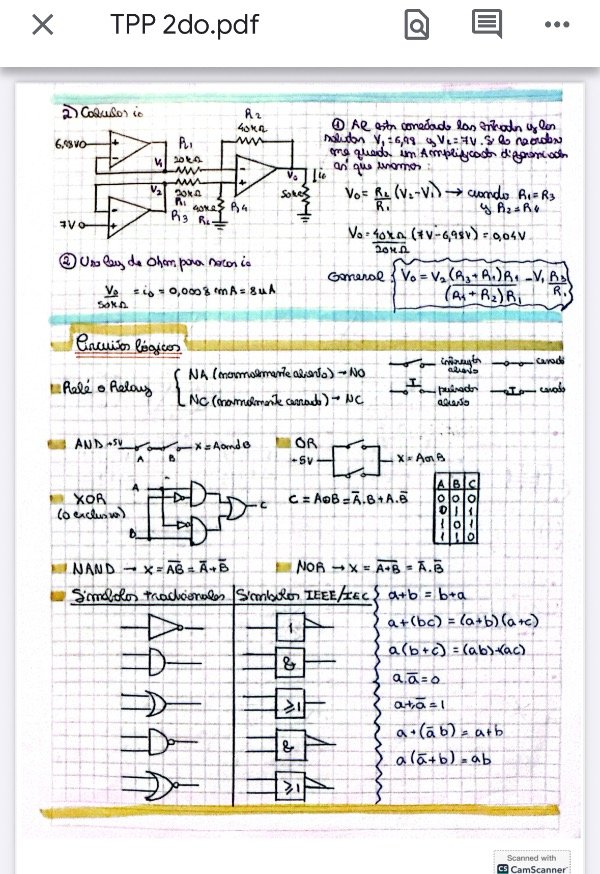 TPP 2do.pdf
2) Calcular i₀
R₂
40kΩ
6,98V
V₁
R₁
20kΩ
V₂
20kΩ
R₁
R₃
40kΩ
R₄
V₀
↓i₀
50kΩ
7V
① Al estar conectado las entradas y las
salidas V₁ = 6,98 y V₂ = 7V. Si lo
me queda un Amplificador diferenciador
así que usamos:
V₀ = R₂/R₁ (V₂-V₁) → cuando R₁=R₃
y R₂=R₄
V₀ = 40kΩ/20kΩ (7V-6,98V) = 0,04V
② Uso ley de Ohm para sacar i₀
V₀/50kΩ = i₀ = 0,0008 mA = 8uA
General
Circuitos lógicos
Relé o Relay
NA (normalmente abierto) → NO
NC (normalmente cerrado) → NC
interruptor
abierto
cerrado
pulsador
abierto
cerrado
AND +5V
A B
X = A and B
OR
+5V
X = A or B
XOR
(o exclusivo)
A
B
C
C = A⊕B = A̅.B + A.B̅
A B C
0 0 0
0 1 1
1 0 1
1 1 0
NAND → X = A̅B̅ = A̅+B̅
NOR → X = A̅+̅B̅ = A̅.B̅
Símbolos tradicionales
Símbolos IEEE/IEC
1
&
≥1
&
≥1
a+b = b+a
a+(bc) = (a+b)(a+c)
a(b+c) = (ab)+(ac)
a.a̅ = 0
a+a̅ = 1
a+(a̅b) = a+b
a(a̅+b) = ab
Scanned with
CS CamScanner